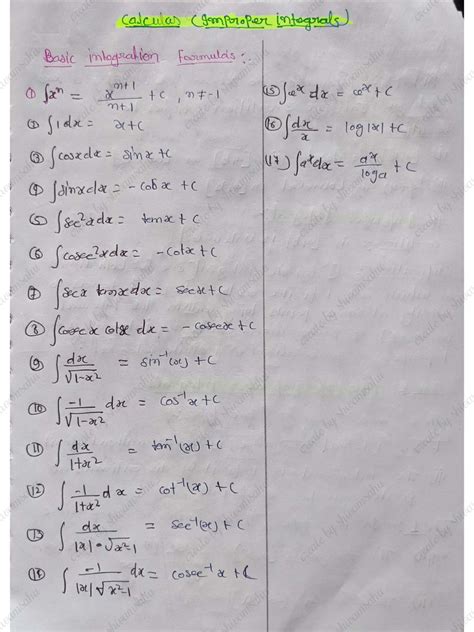 Calculas (Improper integrals)
Basic integration Formula's :-
① ∫xⁿ = xⁿ⁺¹/n+1 + c , n≠-1
② ∫1dx = x+c
③ ∫cosxdx = sinx+c
④ ∫sinxdx = -cosx +c
⑤ ∫sec²xdx = tanx + c
⑥ ∫cosec²xdx = -cotx +c
⑦ ∫secx tanxdx = secx+c
⑧ ∫cosecx cotx dx = -cosecx +c
⑨ ∫dx/√1-x² = sin⁻¹(x) +c
⑩ ∫-1/√1-x² dx = cos⁻¹x +c
⑪ ∫dx/1+x² = tan⁻¹(x) +c
⑫ ∫-1/1+x² dx = cot⁻¹(x) +c
⑬ ∫dx/|x|•√x²-1 = sec⁻¹(x) +c
⑭ ∫-1/|x|√x²-1 dx = cosec⁻¹x +c
⑮ ∫eˣdx = eˣ+c
⑯ ∫dx/x = log|x| +c
(17) ∫aˣdx = aˣ/loga +c